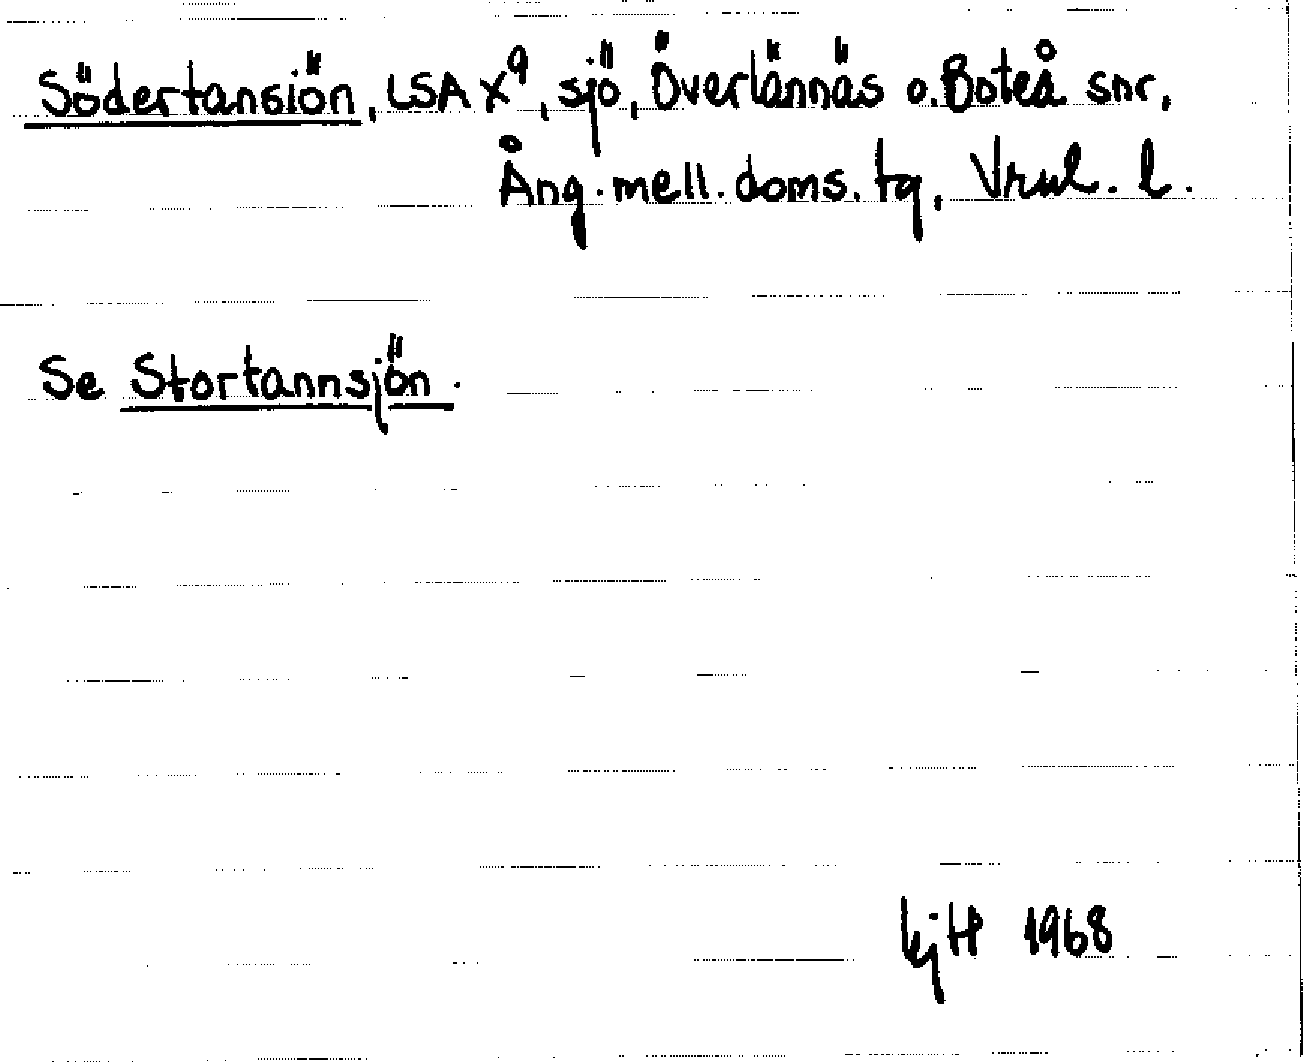 Södertansiön, LSA X⁹, sjö, Överlännäs o. Boteå snr,
Ång. mell. doms. tg, Vrnl. l.
Se Stortannsjön.
1968